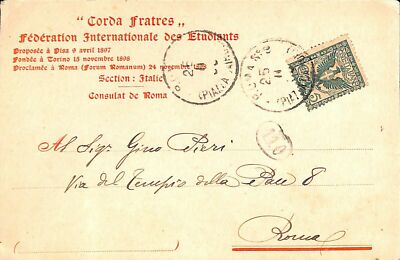 "Corda Fratres„
Fédération Internationale des Étudiants
Proposée à Pisa 9 avril 1897
Fondée à Torino 15 novembre 1898
Proclamée à Roma (Forum Romanum) 24 novembre
Section: Italie
Consulat de Roma
ROMA
25
14
110
Al Sigr Gino Pieri
Via del Tempio della Pace 8
Roma